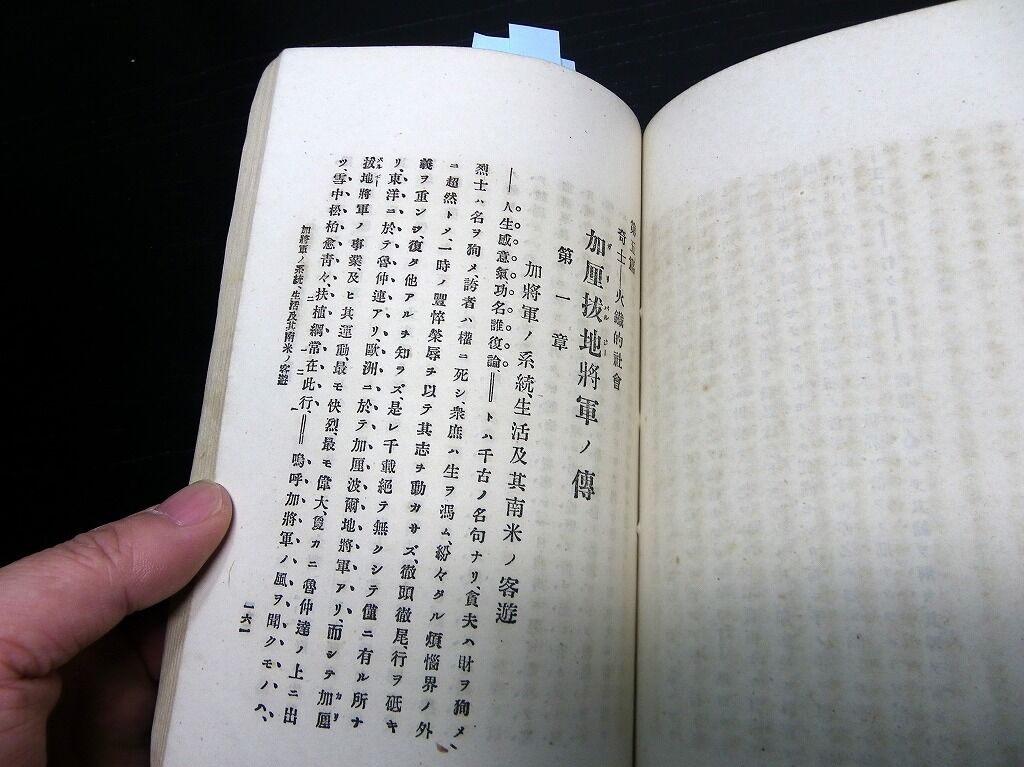 第五篇
奇士――火鐵的社會
加厘拔地將軍ノ傳
第一章
加將軍ノ系統、生活及其南米ノ客遊
――人生感意氣功名誰復論――トハ千古ノ名句ナリ、貪夫ハ財ヲ狥メ、
烈士ハ名ヲ狥メ誇者ハ權ニ死シ、衆庶ハ生ヲ馮ム、紛々タル煩惱界ノ外
ニ超然トメ、一時ノ豐悴榮辱ヲ以テ其志ヲ動カサズ、徹頭徹尾、行ヲ砥キ
義ヲ重ンジ、復タ他アルヲ知ラズ、是レ千載絕テ無シシテ僅ニ有ル所ナ
リ、東洋ニ於テ魯仲連アリ、歐洲ニ於テ加厘波爾地將軍アリ、而シテ加厘
拔地將軍ノ事業、及ヒ其運動、最モ快烈、最モ偉大、夐カニ魯仲達ノ上ニ出
ツ、雪中松柏愈青々、扶植綱常在此行、――嗚呼加將軍ノ風ヲ聞クモノハ、
加將軍ノ系統、生活及其南米ノ客遊
【六一】